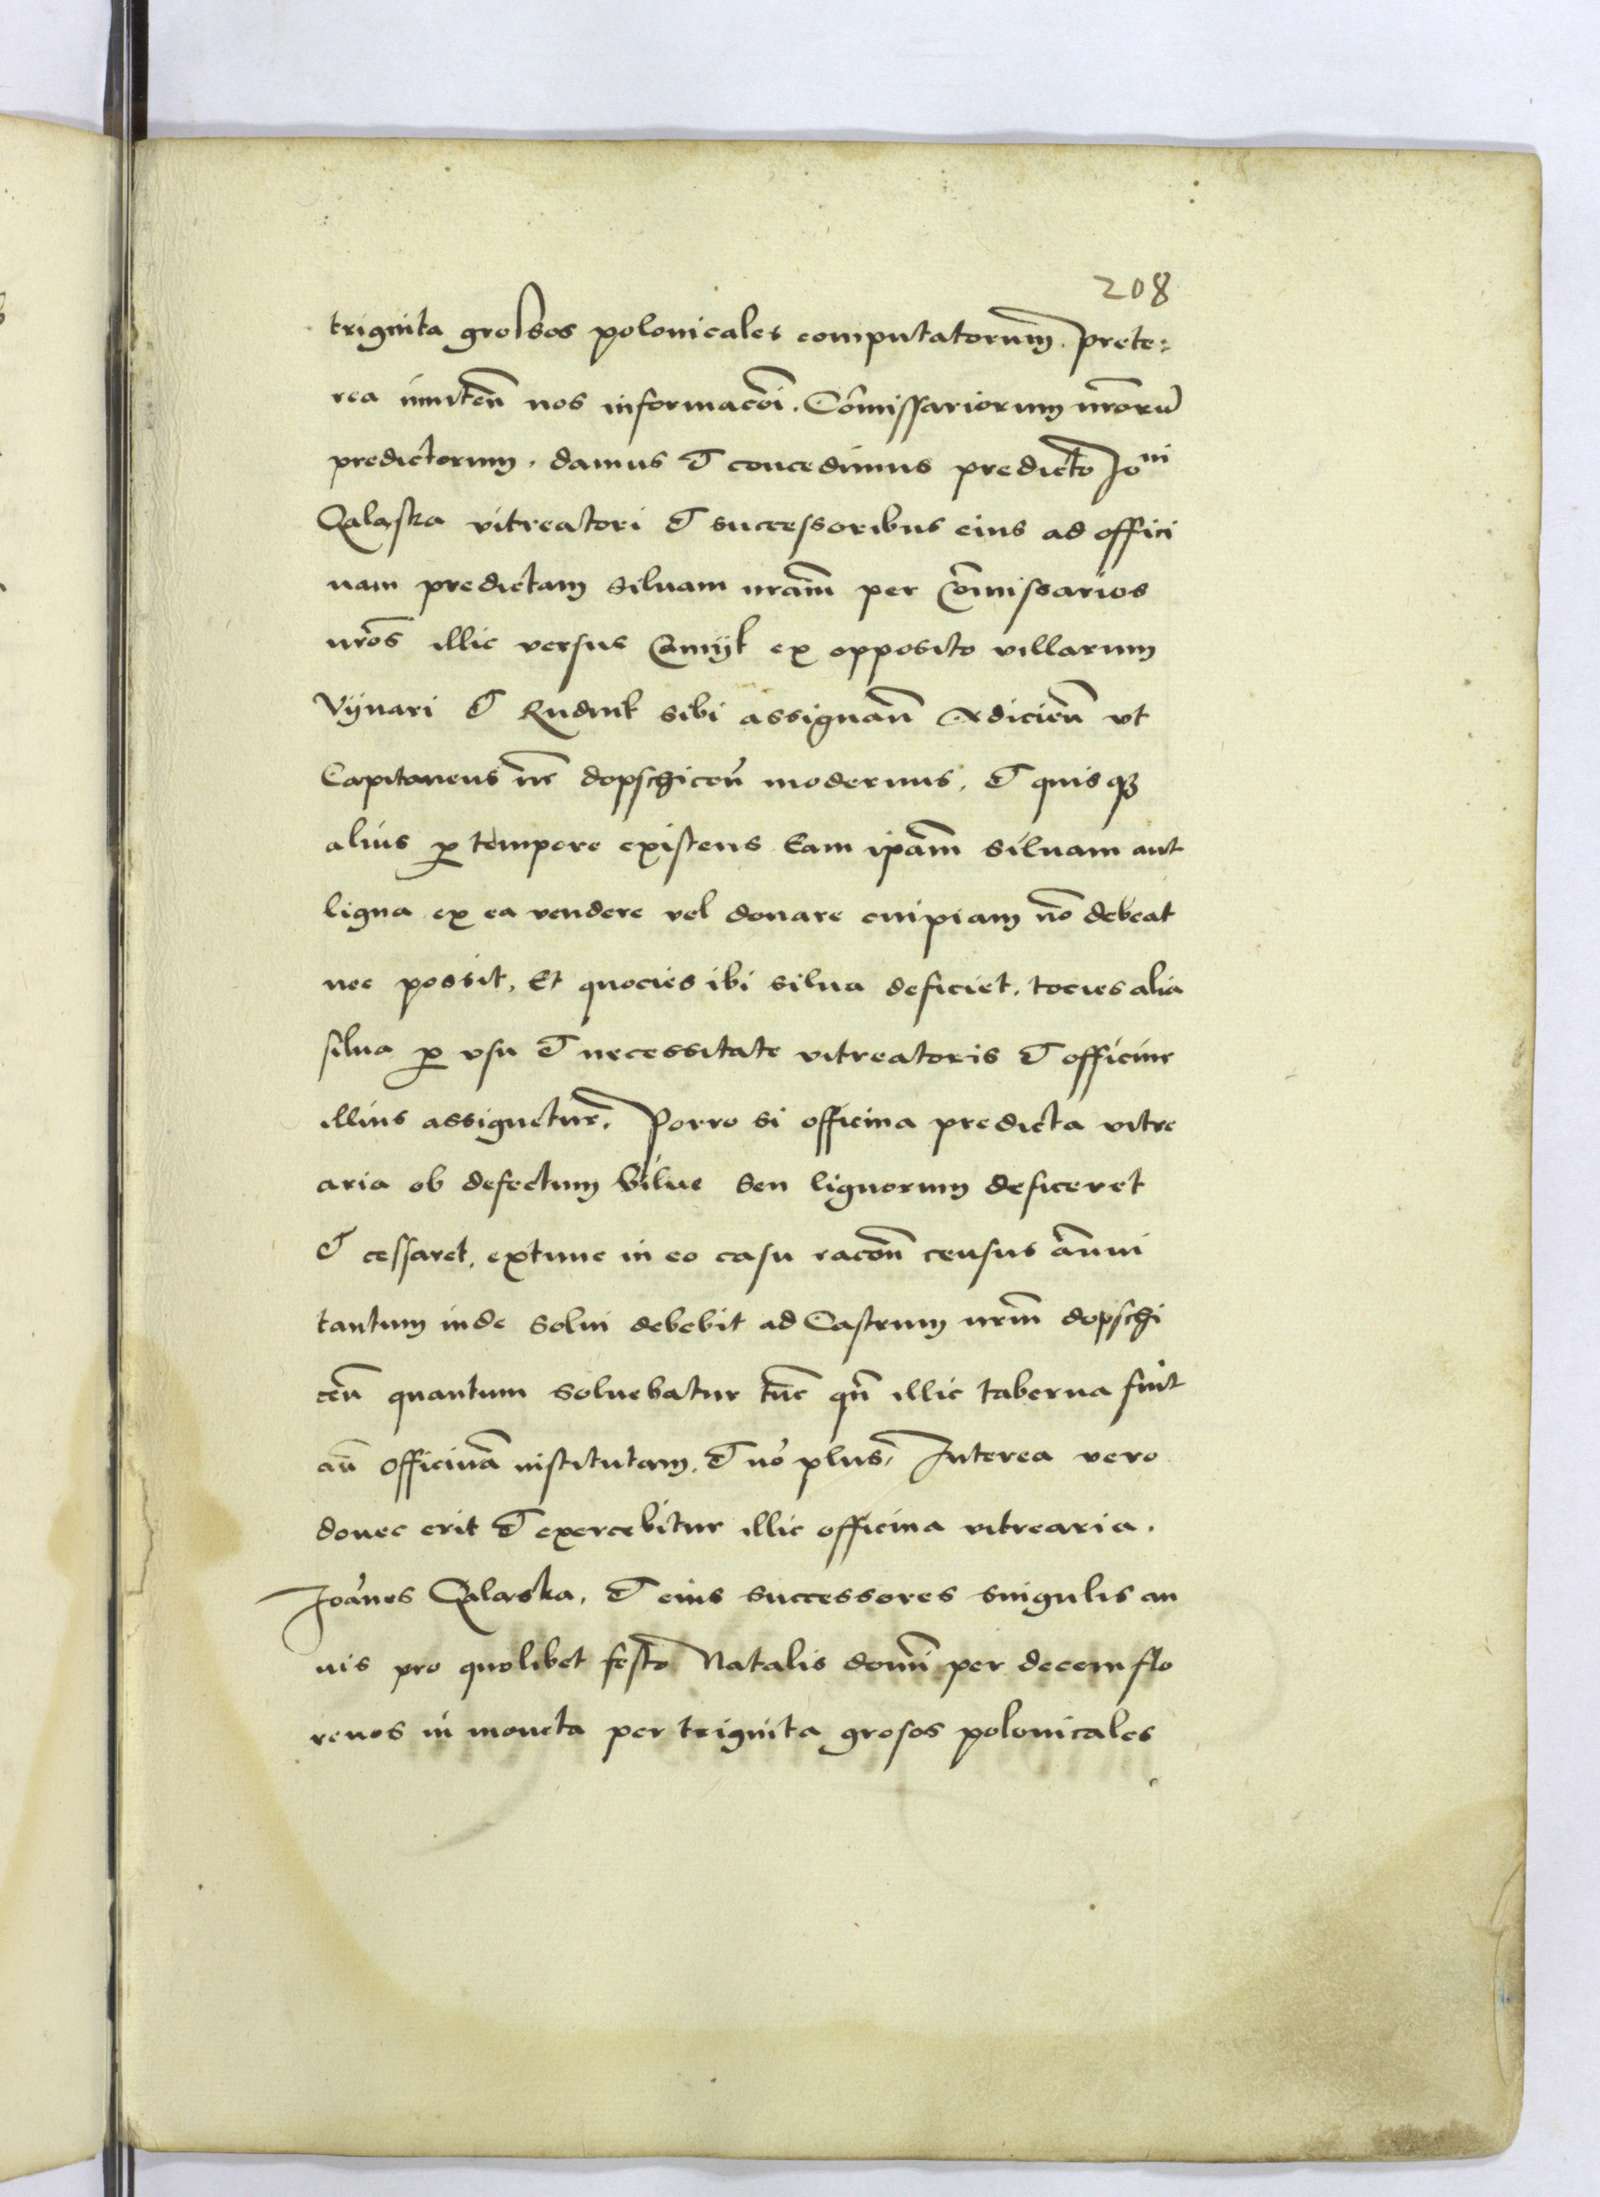 208
triginta grossos polonicales computatorum. prete:
rea inniten̄ nos informacōi. Cōmissariorum nr̄orū
predictorum. damus et concedimus predicto Joⁿⁱ
Qalaska vitreatori et successoribus eius ad offici
nam predictam siluam nrām per Cōmissarios
nrōs illic versus ex opposito villarum
Vÿnari et Rudnik sibi assignan̄ Adicien̄ vt
Capitaneus nr̄ dopschicen̄ modernus. et quisqꝫ
alius ꝓ tempore existens Eam ipām siluam aut
ligna ex ea vendere vel donare cuipiam nō debeat
nec possit. Et quocies ibi silua deficiet. tocies alia
silua ꝓ vsu et necessitate vitreatoris et officine
illius assignetur. Porro si officina predicta vitre
aria ob defectum silue seu lignorum deficeret
et cessaret. extunc in eo casu racōn̄ census ānui
tantum inde solui debebit ad Castrum nrm̄ dopschi
cen̄ quantum soluebatur tūc qn̄ illic taberna fuit
an̄ officinā institutam. et nō plus. Interea vero
donec erit et exercebitur illic officina vitrearia.
Joānes Qalaska. et eius successores singulis an
nis pro quolibet festo Natalis domī per decem flo
renos in moneta per triginta grosos polonicales